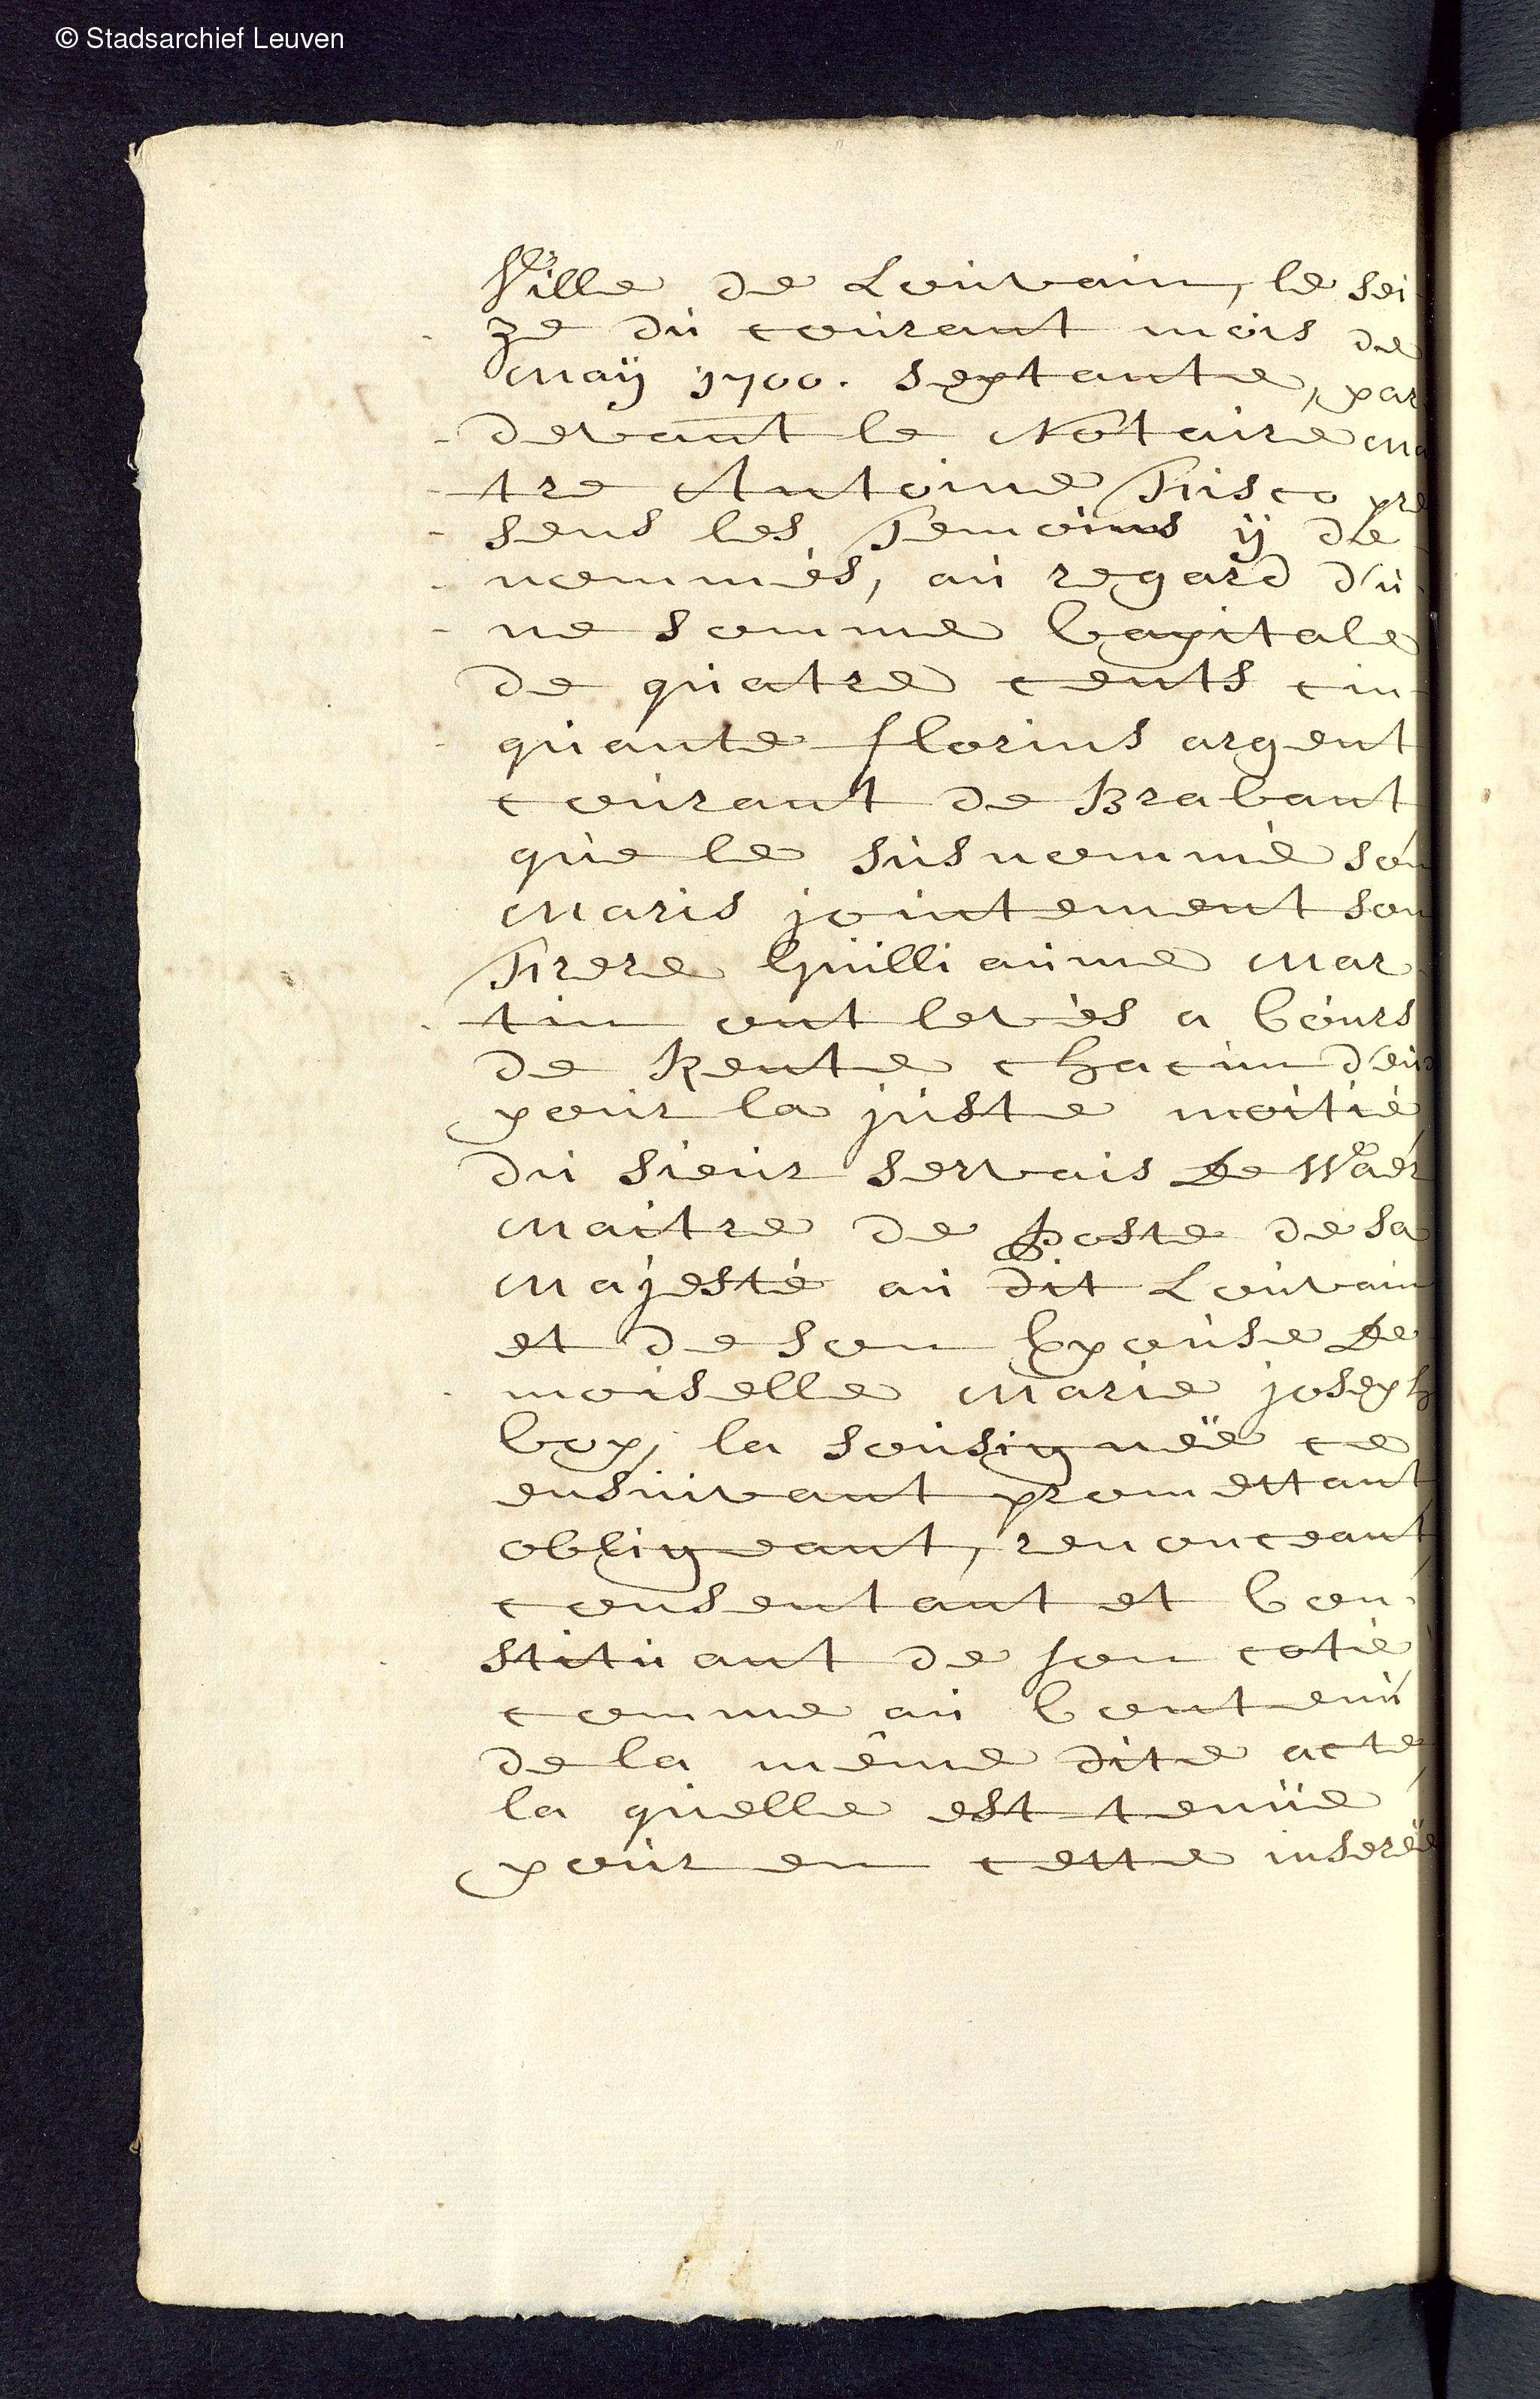 © Stadsarchief Leuven
Ville de Louvain, le sei
ze du courant mois de
Maÿ 1700. septante, par
devant le Notaire Ma
tre Antoine Fisco pre
sens les Temoins ÿ de
nommés, au regard d'u
ne somme Capitale
de quatre cents cin
quante florins argent
courant de Brabant
que le susnommé son
Maris jointement son
Frere Guilliaume Mar
tin ont levés a Cours
de Rente chacun d'eux
pour la juste moitié
du sieur Servais De Waer
Maitre de Poste de sa
Majesté au dit Louvain
et de son Epouse De
moiselle Marie joseph
Cox, la sousignëë ce
ensuivant promettant
obligeant, renonceant
consentant et Con
stituant de son cotié
comme au Contenu
de la même dite acte
la quelle est tenüe
pour en cette inserëe